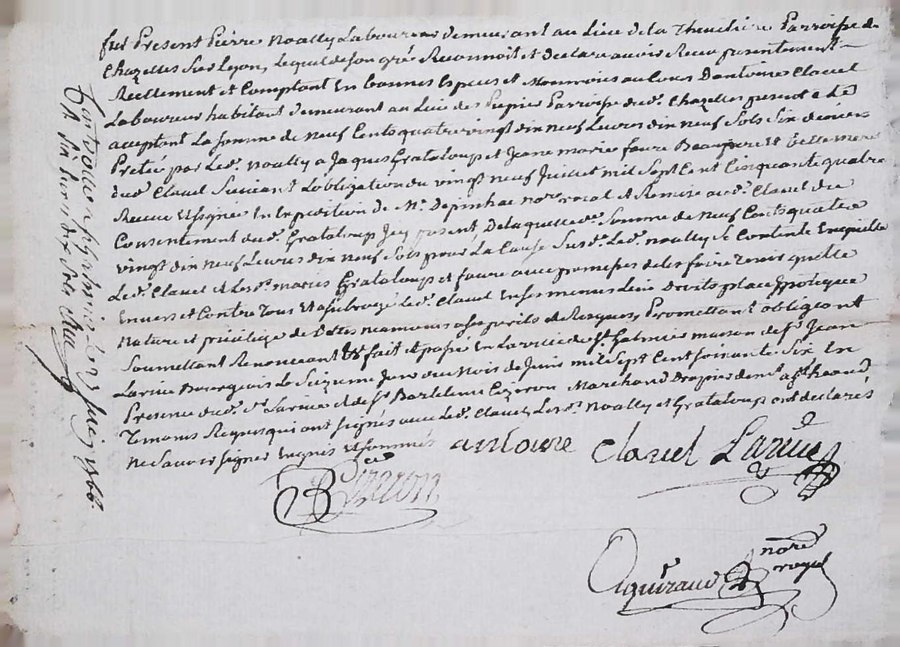 fut Present Pierre Noally Laboureur demeurant au Lieu de la Thuiliere Parroisse de
Chazelles sur Lyon, Lequel de son gré Reconnoit et declare avoir Receu presentement
Reellement et Comptant En bonnes Especes et Monnoies au Cours D'antoine Clavel
Laboureur habitant demeurant au Lieu des Pupier Parroisse dud. Chazelles present et
acceptant La somme de Neuf Cents quatre vingt dix neuf Livres dix neuf Sols Six deniers
Preté par Led. Noally a Jaques Grataloup et Jeanne marie faure Beaupere et belle mere
dud. Clavel Suivant Lobligation du vingt neuf Juillet mil Sept Cent Cinquante quatre
Receue Et signée En Expedition de Me. Depinhac nore. royal et Remise aud. Clavel du
Consentement dud. Grataloup Icy present De laquelle d. Somme de Neuf Cents quatre
vingt dix neuf Livres dix neuf Sols pour La Cause Susd. Led. Noally Se Contente En quitte
Led. Clavel et Les d. mariés Grataloup et faure avec promesse de les faire Tenir quitte
Envers et Contre Tous Et a Subrogé Led. Clavel En ses memes Lieu Droits place hypoteque
Nature et privilege de Dettes neamoins a ses perils et Risques, Promettant obligeant
Soumettant Renonceant &c fait et passé En La ville de St. Galmier maison de Sr. Jean
Larive Bourgeois Le Seizieme Jour du Mois de Juin mil Sept Cent Soixante Six En
Presence dud. Sr. Larive et de Sr. Bartelemi Marchand Drapier demt. aud.
Temoins Requis qui ont Signés avec Led. Clavel, Les d. Noally et Grataloup ont declarés
Ne Savoir signer Enquis Et sommés
antoine Clavel Larive
Nore
royal
Aguiraud
Juin 1766.